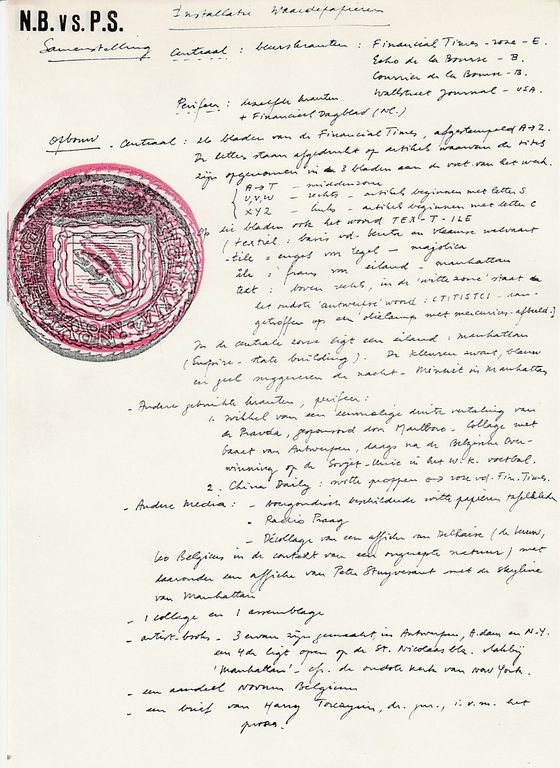 N.B. vs. P.S.
Installatie Waardepapieren
Samenstelling Centraal : beurskranten : Financial Times - rose - E.
Echo de la Bourse - B.
Courrier de la Bourse - B.
Wallstreet Journal - USA.
Perifeer : dezelfde kranten
+ Financieel Dagblad (NL.)
Opbouw - Centraal : 26 bladen van de Financial Times, afgestempeld A→Z.
De letters staan afgedrukt op artikels waarvan de titels
zijn opgenomen in 3 bladen aan de voet van het werk.
A→T - middenzone
U,V,W - rechts - artikels beginnen met letter S
XYZ - links - artikels beginnen met letter C
Op die bladen ook het woord TEX-T-ILE
(textiel : basis vd. Gentse en Vlaamse welvaart
-tile = engels voor tegel - majolica
île : frans voor eiland - manhattan
text : boven rechts, in de 'witte zone' staat
het oudste 'antwerpse' woord : CTITISTCI - aan-
getroffen op een olielamp met mercurius-afbeeld.)
In de centrale zone ligt een eiland : manhattan
(Empire-state building). De kleuren zwart, blauw
en geel suggereren de nacht - Minuit in Manhattan
- Andere gebruikte kranten, perifeer :
1. wikkel van een eenmalige duitse vertaling van
de Pravda, gesponsord door Marlboro - Collage met
Gazet van Antwerpen, daags na de Belgische over-
winning op de Sovjet-Unie in het W.K. voetbal.
2. China Daily : witte proppen ↔ rose vd. Fin. Times.
- Andere Media : - boergondisch beschilderde witte papieren tafelkleden
- Radio Praag
- Décollage van een affiche van Delhaize (de leeuw,
Leo Belgicus in de context van een ongerepte natuur) met
daaronder een affiche van Peter Stuyvesant met de skyline
van Manhattan
- 1 collage en 1 assemblage
- artist-books - 3 ervan zijn gemaakt, in Antwerpen, A.dam en N.Y.
een 4de ligt open op de St. Nicolaas
'Manhattan' - cfr. de oudste kerk van New York.
- een aandeel Novum Belgium
- een brief van Harry Torczyner, dr. jur., i.v.m. het
proces.